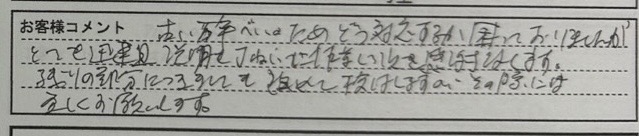 お客様コメント 古い 塀のため どう対応するか困っておりましたが
とても 説明も ていねいに作業いただき感謝します。
残りの部分につきましても 改めて検討しますので その際には
宜しくお願いします。